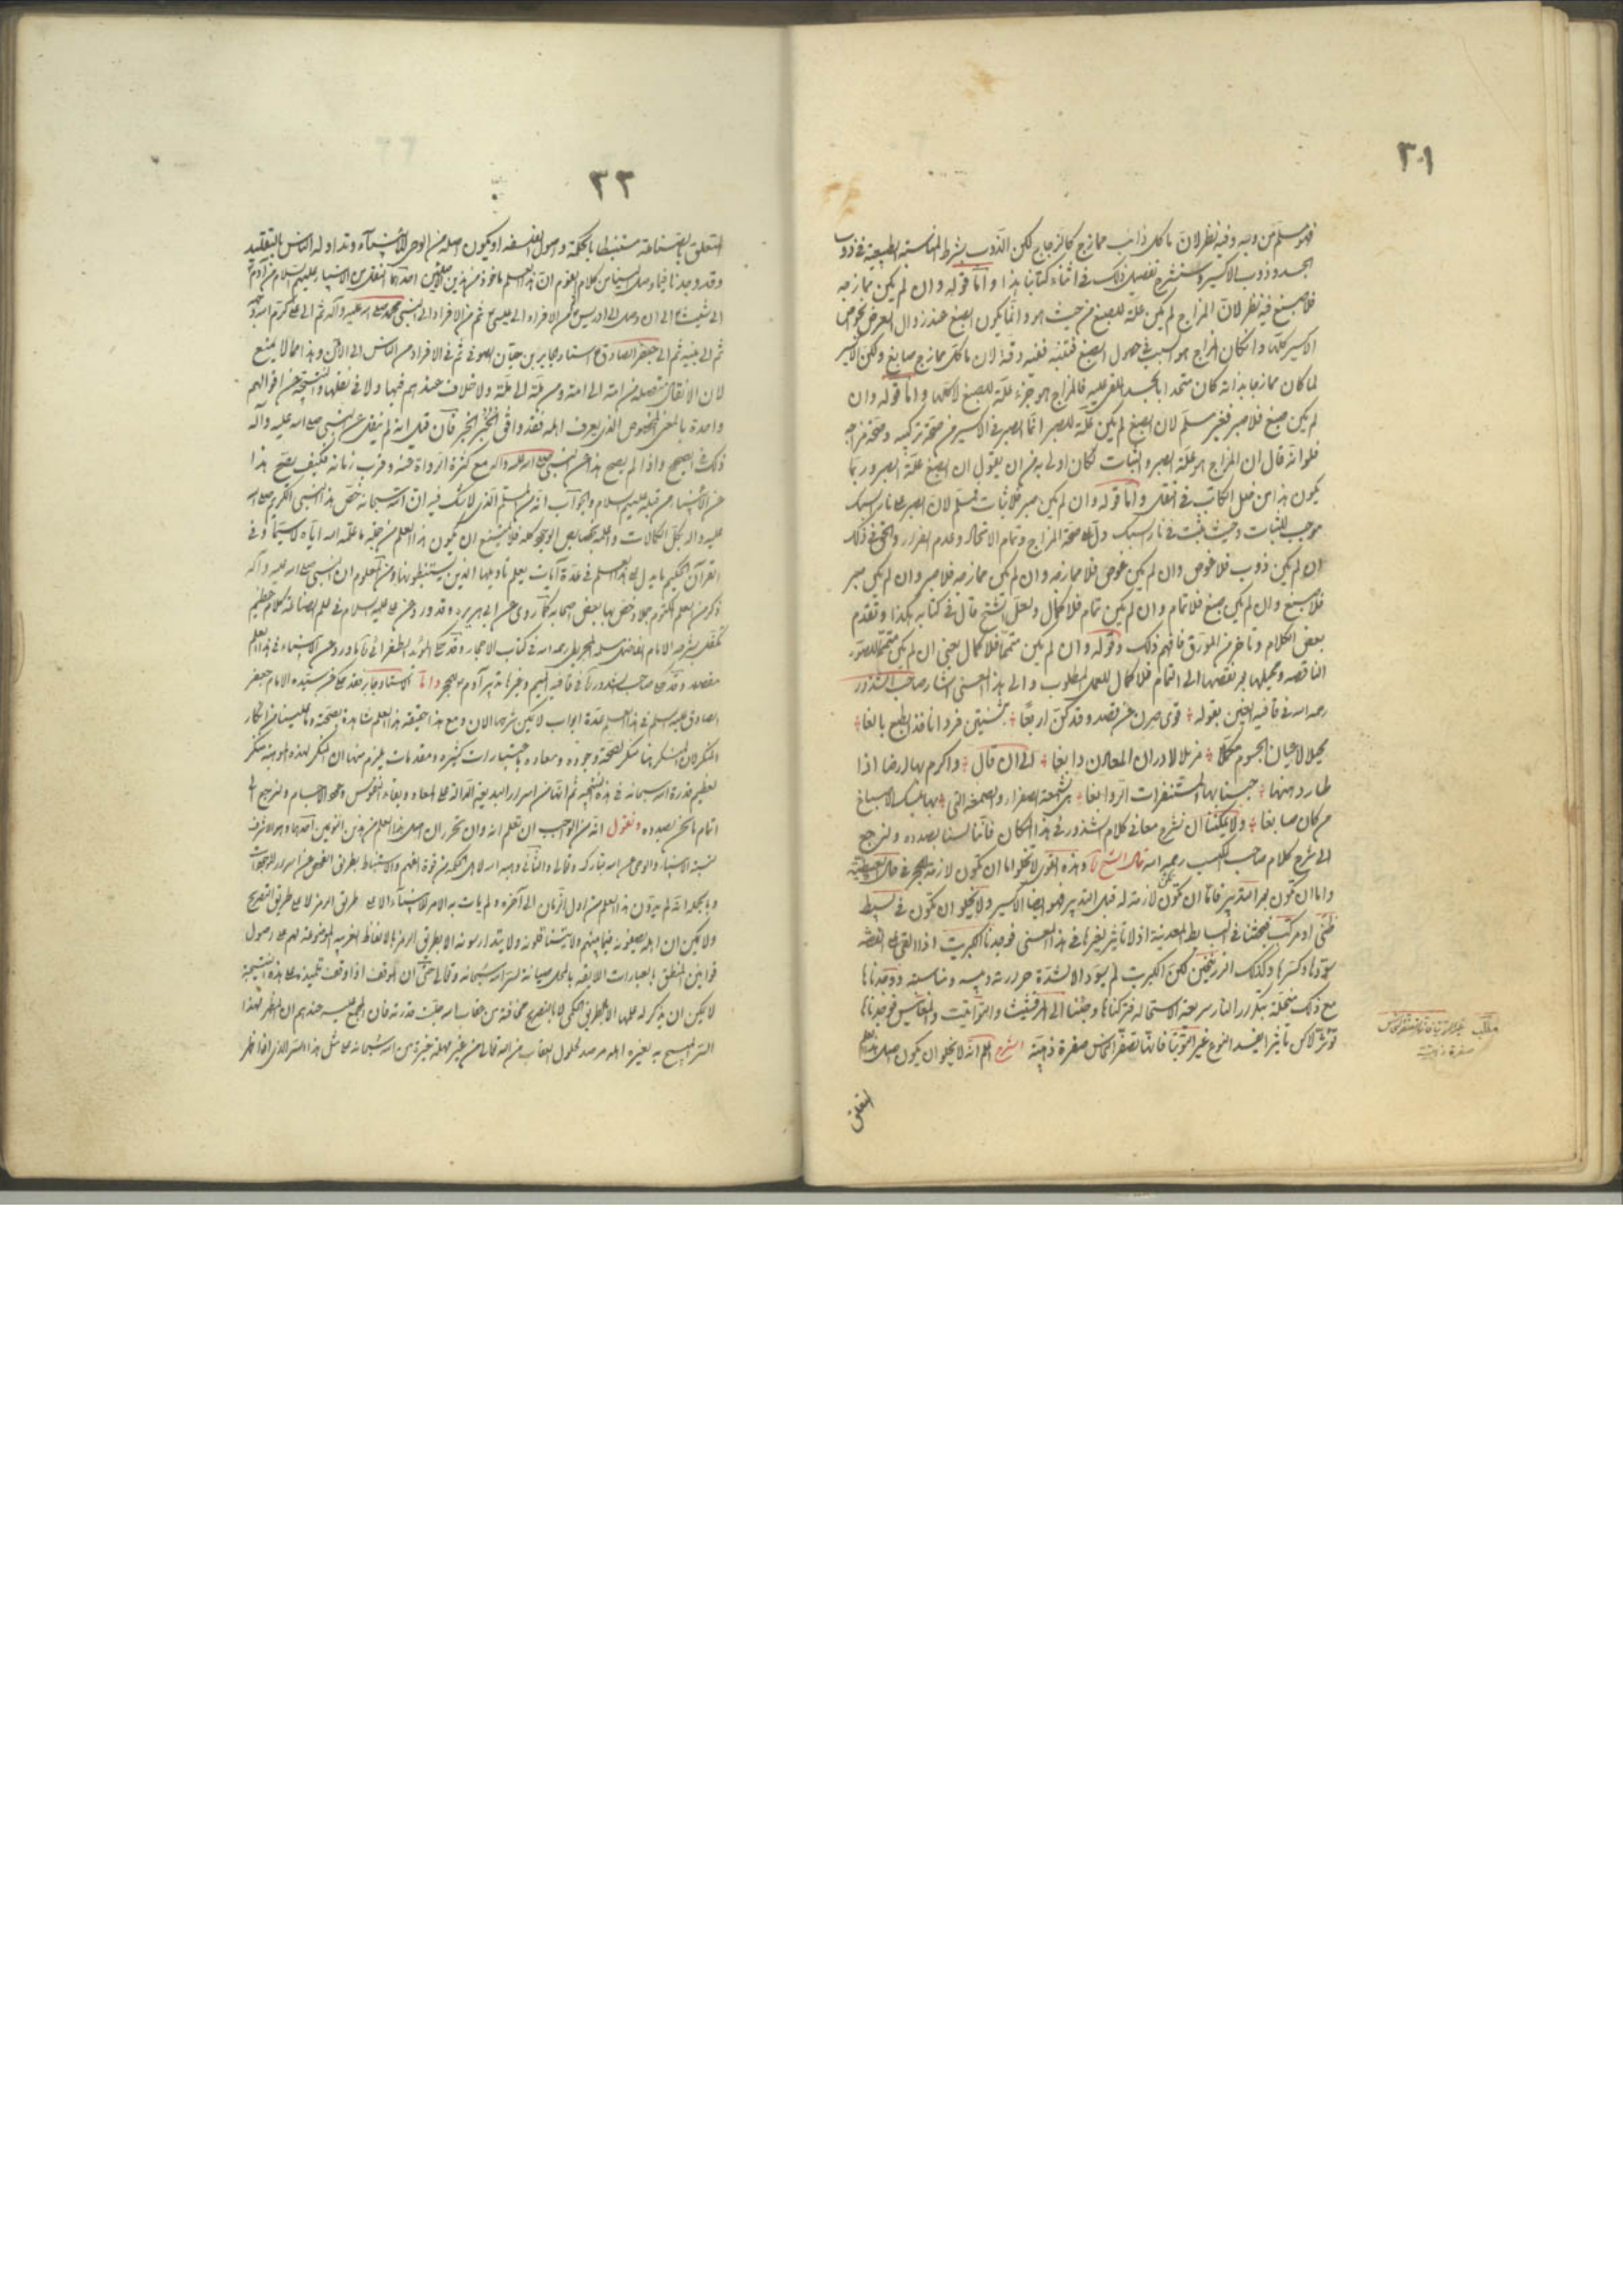 ٣١
فهو مسلم من وجه وفيه نظر لان ما كل ذائب ممازج كالزجاج لكن الذوب بشرط المناسبة الطبيعية في ذوب
الجسد وذوب الاكسير وسنشرح تفصيل ذلك في اثناء كتابنا هذا واما قوله وان لم يكن ممازجه
فلا صبغ فيه نظر لان المزاج لم يكن علة للصبغ من حيث هو وانما يكون الصبغ عند زوال العرض بخواص
الاكسير كلها وان كان المزاج هو السبب في حصول الصبغ ففيه دقة لان ما كل ممازج صابغ ولكن الاكسير
لما كان ممازجا بذاته كان متحدا بالجسد الملقى عليه فالمزاج هو جزء علة للصبغ لا كلها واما قوله وان
لم يكن صبغ فلا صبر فغير مسلم لان الصبغ لم يكن علة للصبر انما الصبر في الاكسير من صحة تركيبه وصحة مزاجه
فلو انه قال ان المزاج هو علة الصبر والثبات لكان اولى به من ان يقول ان الصبغ علة الصبر وربما
يكون هذا من فعل الكاتب في النقل واما قوله وان لم يكن صبر فلا ثبات فمسلم لان الصبر على نار السبك
موجب للثبات وحيث ثبت في نار السبك دل على صحة المزاج وتمام الاتحاد وعدم الفرار والحق في ذلك
ان لم يكن ذوب فلا غوص وان لم يكن غوص فلا ممازجه وان لم يكن ممازجه فلا صبر وان لم يكن صبر
فلا صبغ وان لم يكن صبغ فلا تمام وان لم يكن تمام فلا كمال ولعل الشيخ قال في كتابه هكذا وتقدم
بعض الكلام وتأخر من المورق فافهم ذلك وقوله وان لم يكن متمما فلا كمال يعني ان لم يكن متمما للصور
الناقصه ويحيلها من نقصها الى التمام فلا كمال للعمل المطلوب والى هذا المعنى اشار صاحب الشذور
رحمه الله في قافيه الغين بقوله قوى صرن عن قصد وقد كن اربعا شنتين فردا نافذ الطبع بالغا
يحيلا لاعيان الجسوم مكملا مزيلا لادران المعادن دابغا الى ان قال واكرم بها ارضا اذا
طار دهنها حبسنا بها المستنفرات الروابغا هي الشمعة الصفراء والصمغة التي بها يمسك الاصباغ
من كان صابغا ولا يمكننا ان نشرح معاني كلام الشذور في هذا المكان فاننا لسنا بصدده ولنرجع
الى شرح كلام صاحب المكتسب رحمه الله قال الشيخ وهذه القوى لا تخلو اما ان تكون لازمة للحجر في حال
واما ان تكون بعد التدبير فاما ان تكون لازمة له قبل التدبير فهو ايضا الاكسير ولا يخلو ان تكون في بسيط
او مركب فبحثنا في البسايط المعدنية اذ لا تأثير لغيرها في هذا المعنى فوجدنا الكبريت اذا القي على الفضه
سودها وكسرها وكذلك الزرنيخين لكن الكبريت لم يسود الا لشدة حرارته ويبسه ومناسبته ووجدناها
مع ذلك منحلة بتكرار النار سريعة الاستحاله فتركناها وجئنا الى المرقشيثا والتوتيا والمغانيس فوجدناها
تؤثر لكن تأثيرا يفسد النوع غير التوتيا فانها تصفر النحاس صفرة ذهبية الشرح اعلم انه لا يخلو ان يكون اصل هذا العلم
المتعلق
مطلب
صفرة ذهبيه
٣٢
المتعلق بالصناعة مستنبطا بالحكمة واصول الفلسفه او يكون اصله من الوحي للانبياء وتداوله الناس بالتقليد
وقد وجدنا فيما وصل الينا من كلام القوم ان هذا العلم ماخوذ من هذين الاصلين احدهما النقل من الانبياء عليهم السلام من آدم
الى شيث الى ان وصل الى ادريس ثم من الافراد الى عيسى ثم من الافراد الى النبي محمد صلى الله عليه وآله ثم الى علي كرم الله وجهه
ثم الى بنيه ثم الى جعفر الصادق استاد جابر بن حيان الصوفي ثم في الافراد من الناس الى الآن وهذا مما لا يمتنع
لان الانتقال متصلة من امة الى امة ومن ملة الى ملة ولا خلاف عندهم فيها ولا في نقلها والنتيجة من اقوالهم
واحدة بالمعنى المخصوص الذي يعرف اهله فقد وافق الخبر الخبر فان قيل انه لم ينقل عن النبي صلى الله عليه وآله
ذلك في الصحيح واذا لم يصح هذا عن النبي صلى الله عليه وآله مع كثرة الرواة عنه وقرب زمانه فكيف يصح هذا
عن الانبياء من قبله عليهم السلام والجواب انه من المسلم الذي لا شك فيه ان الله سبحانه خص هذا النبي الكريم صلى الله
عليه وآله بكل الكمالات واعلمه بخصايص الوجود كله فلا يمتنع ان يكون هذا العلم من جملة ما علمه الله اياه لا سيما وفي
القرآن الحكيم ما يدل على هذا العلم في عدة آيات يعلم تأويلها الذين يستنبطونها ومن المعلوم ان النبي صلى الله عليه وآله
ذكر من العلم المكتوم جملا وخص بها بعض اصحابه كما روى عن ابي هريره وقد ورد عن علي عليه السلام في علم الصناعة كلام عظيم
تكفل بشرحه الامام الفاضل مسلمه المجريطي رحمه الله في كتاب الاحجار وقد حكى المؤيد الطغرائي ما ورد عن الانبياء في هذا العلم
مفصلا وقد حكى صاحب الشذور في قافية الميم وغيرها تدبير آدم للحجر واما الاستاد جابر فقد حكى عن سيده الامام جعفر
الصادق عليه السلم في هذا العلم عدة ابواب لا يمكن شرحها الان ومع هذا حقيقه هذا العلم شاهدة بصحته وما علينا من انكار
المنكر لان المنكر هنا منكر لصحة وجوده ومعاده باعتبارات كثيره ومقدمات يلزم منها ان المنكر لهذه الموهبة منكر
لعظيم قدرة الله سبحانه في هذه النتيجه ثم انها من اسرار البديعة الدالة على المعاد وبقاء النفوس وعود الاجسام ولنرجع الى
اتمام ما نحن بصدده ونقول انه من الواجب ان تعلم انه وان تحرر ان اصل هذا العلم من هذين النوعين احدهما وهو الاشرف
نسبة الانبياء والوحي من الله تبارك وتعالى والثاني وهبه الله لاهل الحكمة من قوة الفهم والاستنباط بطريق الفحص عن اسرار الموجودات
وبالجملة انه لم يدون هذا العلم من اول الزمان الى آخره ولم يأت به الامر للانبياء الا على طريق الرمز لا على طريق التصريح
ولا يمكن ان اهله يضيفونه فيما بينهم ولا يتناقلونه ولا يتدارسونه الا بطريق الرمز بالالفاظ الغريبه الموضوعة لهم على اصول
قوانين المنطق بالعبارات الايقه بالعلم صيانة لسر الله سبحانه وتعالى حتى ان الموقف اذا اوقف تلميذه على هذه النتيجة
لا يمكن ان يذكر له عملها الا بالطريق الحكمي لا بالتصريح مخافة من عقاب الله جلت قدرته فان المجمع عليه عندهم ان المظهر لهذا
السر المبيح به لغير اهله مرصد لحلول العقاب من الله تعالى من غير مهلة غيرة من الله سبحانه على مثل هذا السر الذي اذا ظهر